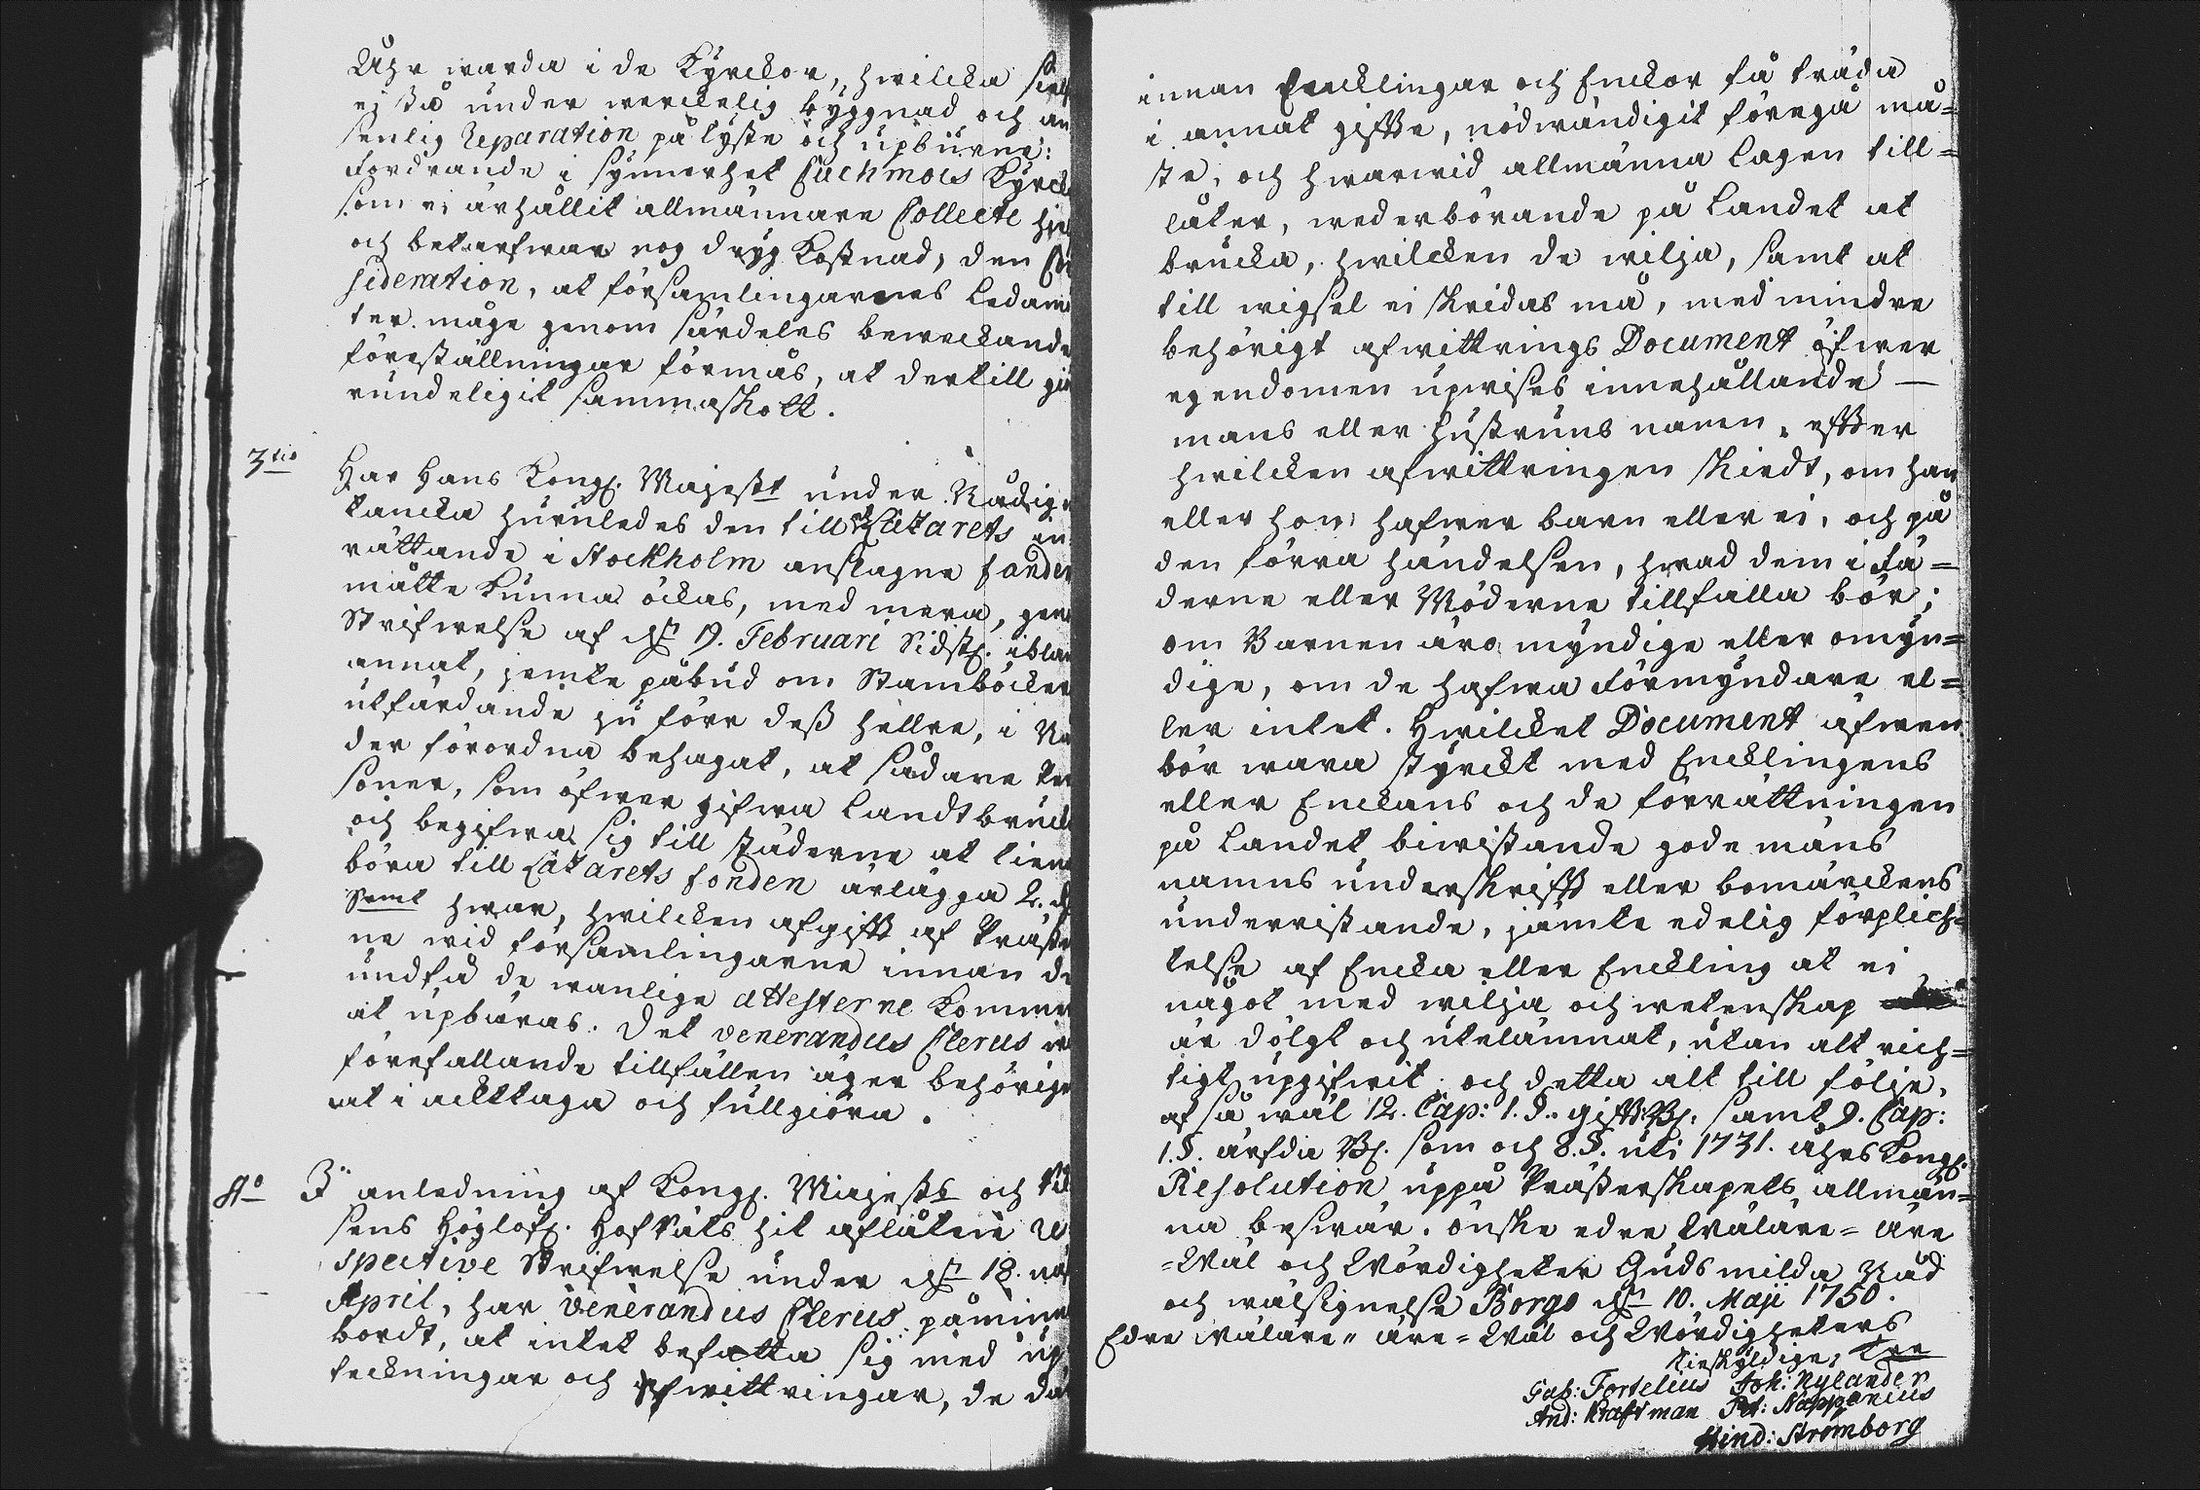 Åhr warda i de Kyrckor, hwilcka
ej stå under werckelig byggnad och an
senlig Reparation pålyste och upburne:
fordrande i synnerhet Cuchmois Kyrck
som ei ärhållit allmännare Collecte
och betarfwar nog dryg Kostnad, den
sideration, at församlingarnes Ledam
ter måge genom särdeles beweckande
föreställningar förmås, at dertill
rundeligit sammaskott.
3tio
Har Hans Kongl. Majest under Nådig
tancka huruledes den till Lazarets in
rättande i Stockholm anslagne fonden
måtte kunna öckas, med mera, gen
Skrifwelse af dn 19. Februari Sidstl. ibla
annat, jemte påbud om Stamböcker
utfärdande ju förr dess hellre, i Nå
der förordna behagat, at sådane
soner, som öfwergifwa Landtbruck
och begifwa sig till städerne at tiena
böra till Lazarets fonden ärlägga 2. d
Smt hwar, hwilcken afgifft af Präste
ne wid församlingarne innan de
undfå de wanlige attesterne komma
at upbäras. Det venerandus Clerus
förefallande tillfällen äger behörige
at i ackttaga och fullgiöra.
4to
I anledning af Kongl. Majests och Rik
sens Höglofl. Hofrätts hit aflåtne Re
spective Skrifwelse under dn 18. nä
April, har Venerandus Clerus påmin
bordt, at intet befatta sig med up
teckningar och afwittringar, de då
innan Encklingar och Enckor få träda
i annat giffte, nödwändigit föregå må=
ste, och hwarwid allmänna lagen till=
låter, wederbörande på Landet at
brucka, hwilcken de wilja, samt at
till wigsel ei skridas må, med mindre
behörigt afwittrings Document öfwer
egendomen upwises innehållande
mans eller hustruns namn, effter
hwilcken afwittringen skiedt, om han
eller hon hafwer barn eller ei, och på
den förra händelsen, hwad dem i Fä=
derne eller Möderne tillfalla bör;
om Barnen äro myndige eller omyn=
dige, om de hafwa Förmyndare el=
ler intet. Hwilcket Document äfwen
bör wara styrckt med Encklingens
eller Enckans och de förrättningen
på Landet biwistande gode mäns
namns underskrifft eller bomärckens
underristande, jämte edelig förplich=
telse af Encka eller Enckling at ei
något med wilja och wetenskap
är dölgt och utelämnat, utan alt rich=
tigt upgifwit. och detta alt till följe,
af så wäl 12. Cap: 1. §. gifft. Bl. samt 9. Cap:
1. §. ärfda Bl. som och 8. §. uti 1731. åhrs Kongl.
Resolution uppå Prästerskapets allmän=
na beswär. önske edre Wäläre= äre
=Wäl och Wördigheter Guds milda Nåd
och wälsignelse Borgo dn 10. Maji 1750.
Edre Wäläre= äre=Wäl och Wördigheters
tienskyldige,
Gab: Fortelius Joh: Nylander
And: Kraftman Pet: Näppenius
Hind: Stromborg